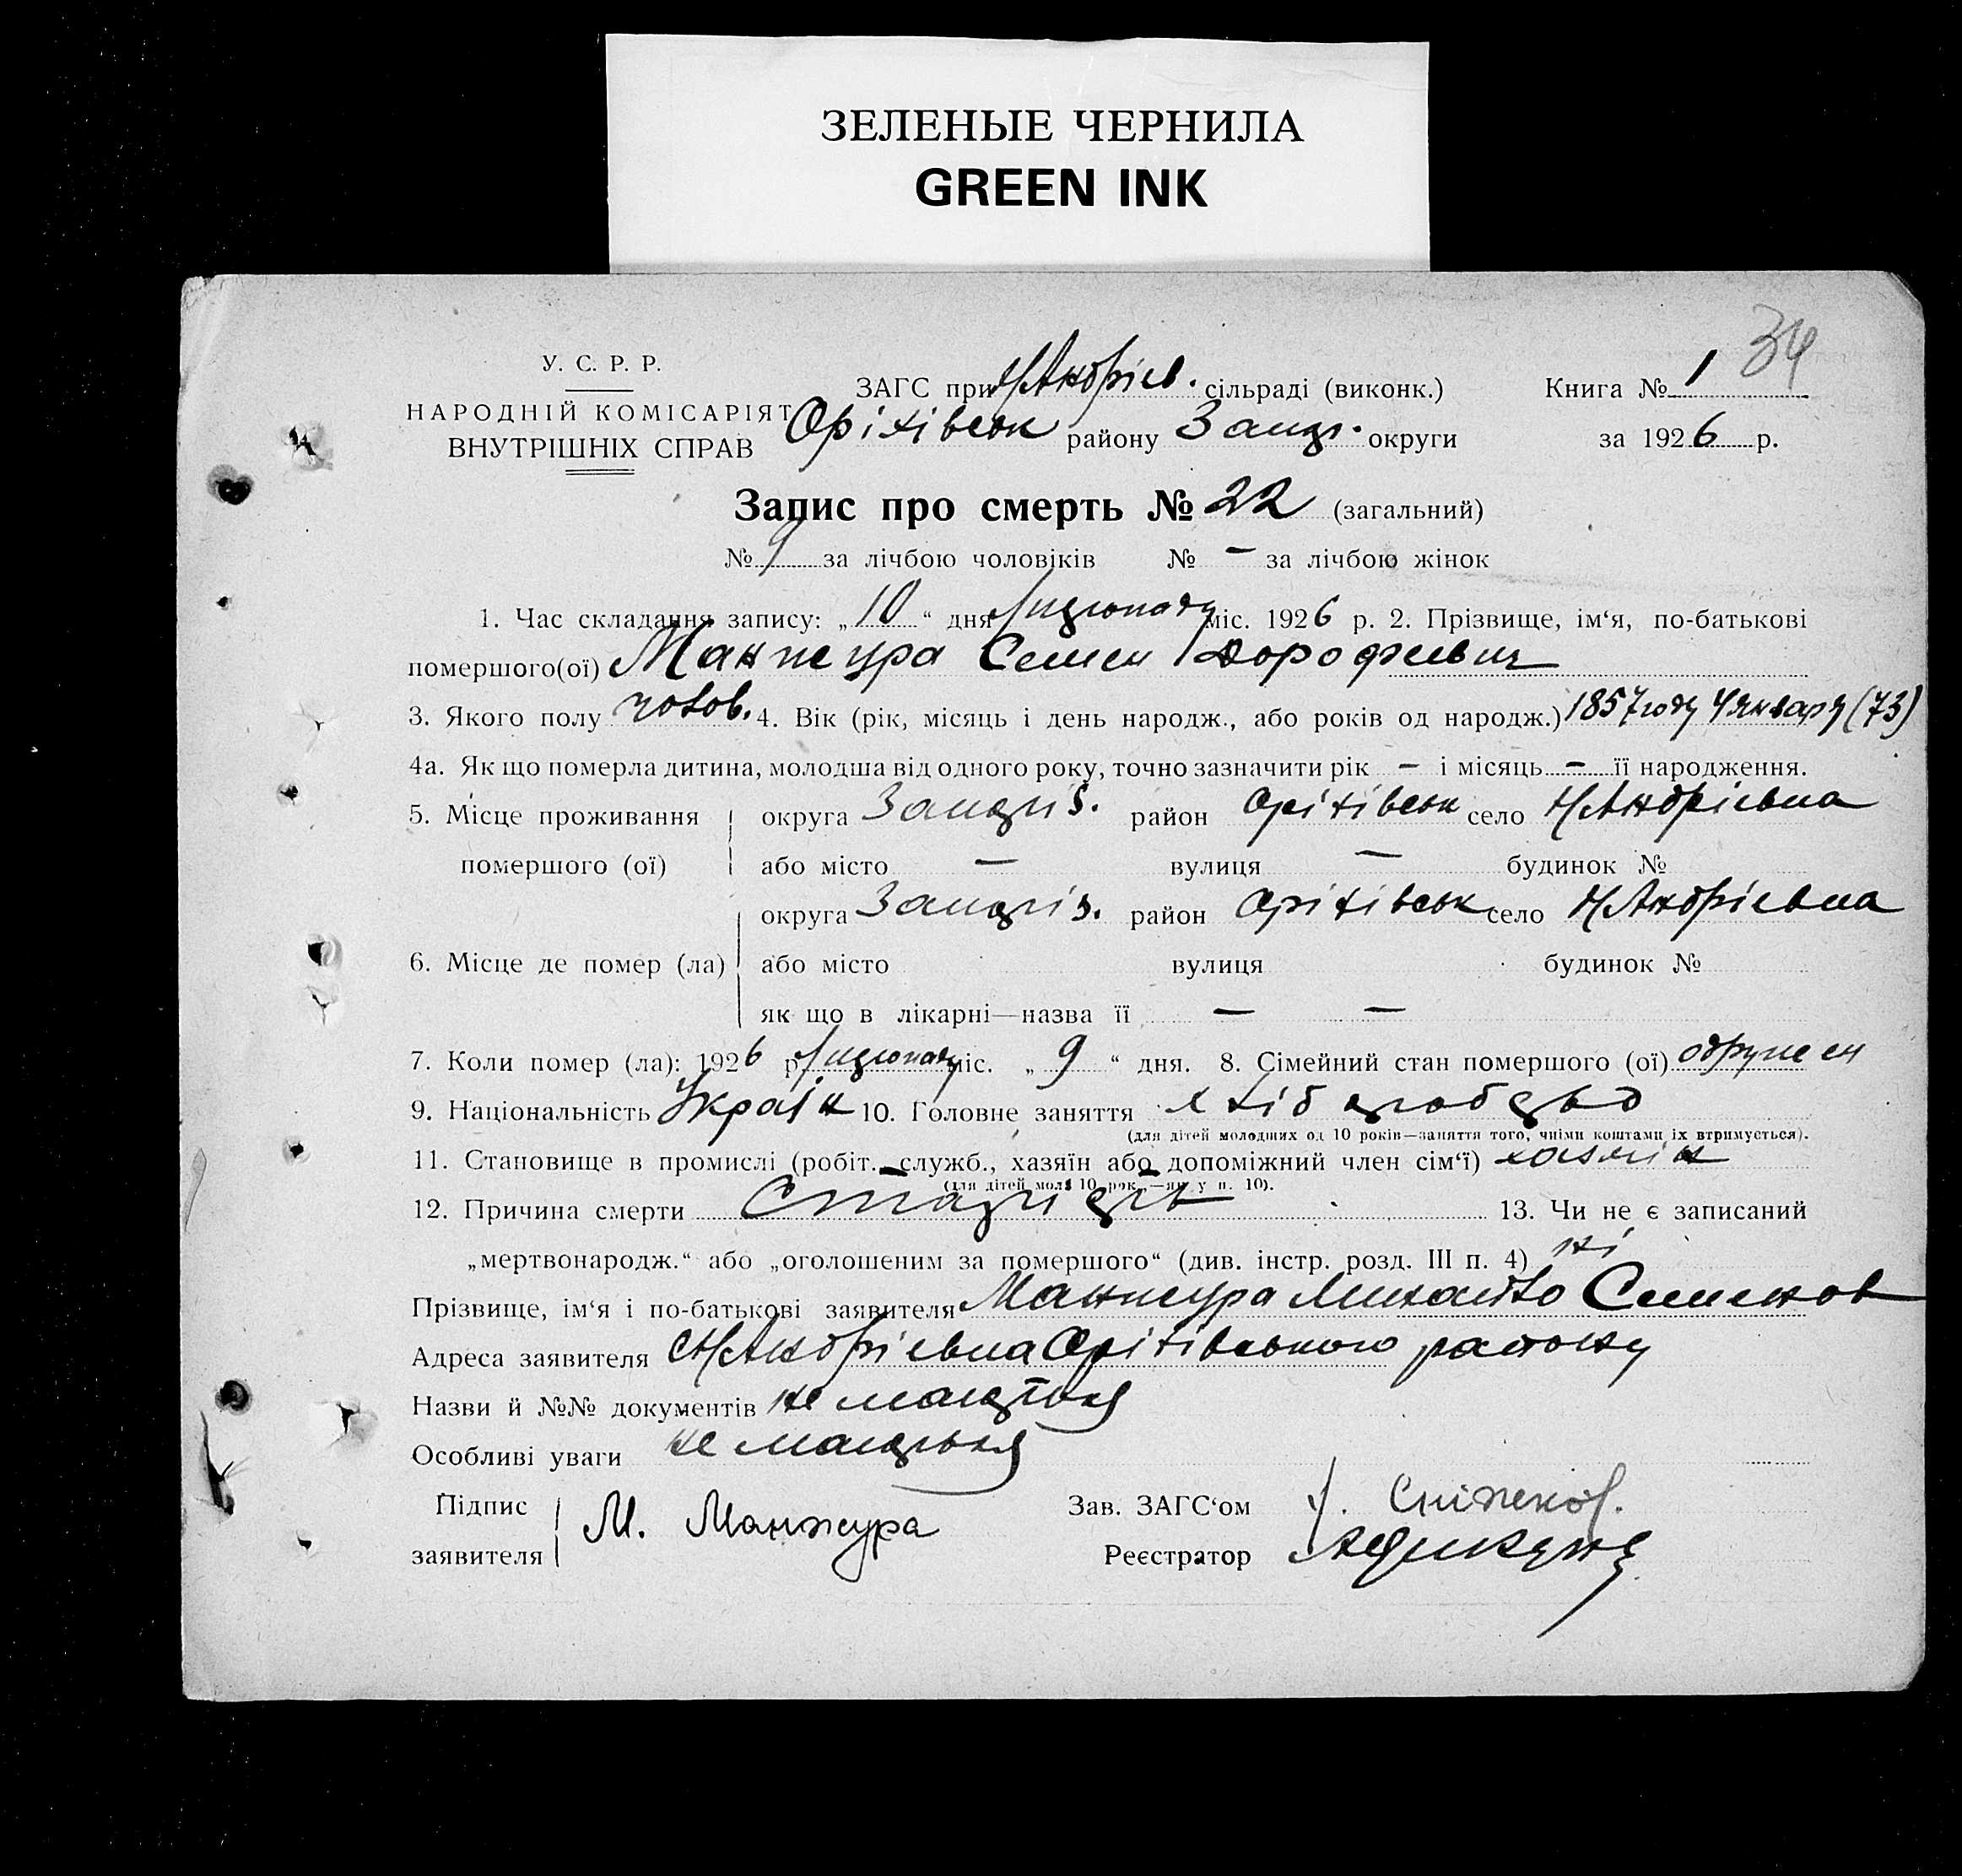 ЗЕЛЕНЫЕ ЧЕРНИЛА
GREEN INK
34
У. С. Р. Р.
НАРОДНІЙ КОМІСАРІЯТ
ВНУТРІШНІХ СПРАВ
ЗАГС при Н/Андрієв. сільраді (виконк.)
Оріхівськ району Запор. округи
Книга № 1
за 1926 р.
Запис про смерть № 22 (загальний)
№ 9 за лічбою чоловіків № — за лічбою жінок
1. Час складання запису: „10“ дня міс. 1926 р. 2. Прізвище, ім‘я, по-батькові
помершого(ої) Манжура Семен Дорофеевич
3. Якого полу чолов. 4. Вік (рік, місяць і день народж., або років од народж.) 1857 году 4 января (73)
4а. Як що померла дитина, молодша від одного року, точно зазначити рік — і місяць — її народження.
5. Місце проживання помершого (ої) округа Запоріз. район Оріхівськ село Н/Андрієвка
або місто — вулиця — будинок №
6. Місце де помер (ла) округа Запоріз. район Оріхівськ село Н/Андрієвка
або місто вулиця будинок №
як що в лікарні—назва її — —
7. Коли помер (ла): 1926 р. міс. „9“ дня. 8. Сімейний стан помершого (ої) одружен
9. Національність Україн 10. Головне заняття хлібороб
(для дітей молодших од 10 років—заняття того, чиїми коштами їх втримується).
11. Становище в промислі (робіт. служб., хазяїн або допоміжний член сім‘ї) хазяїн
(для дітей мол. 10 рок.—як у п. 10).
12. Причина смерти Старість 13. Чи не є записаний
„мертвонародж.“ або „оголошеним за помершого“ (див. інстр. розд. III п. 4) ні
Прізвище, ім‘я і по-батькові заявителя Манжура Михайло Семенов
Адреса заявителя с Н/Андрієвка Оріхівського району
Назви й №№ документів не мається
Особливі уваги не мається
Підпис заявителя М. Манжура
Зав. ЗАГС‘ом
Реєстратор